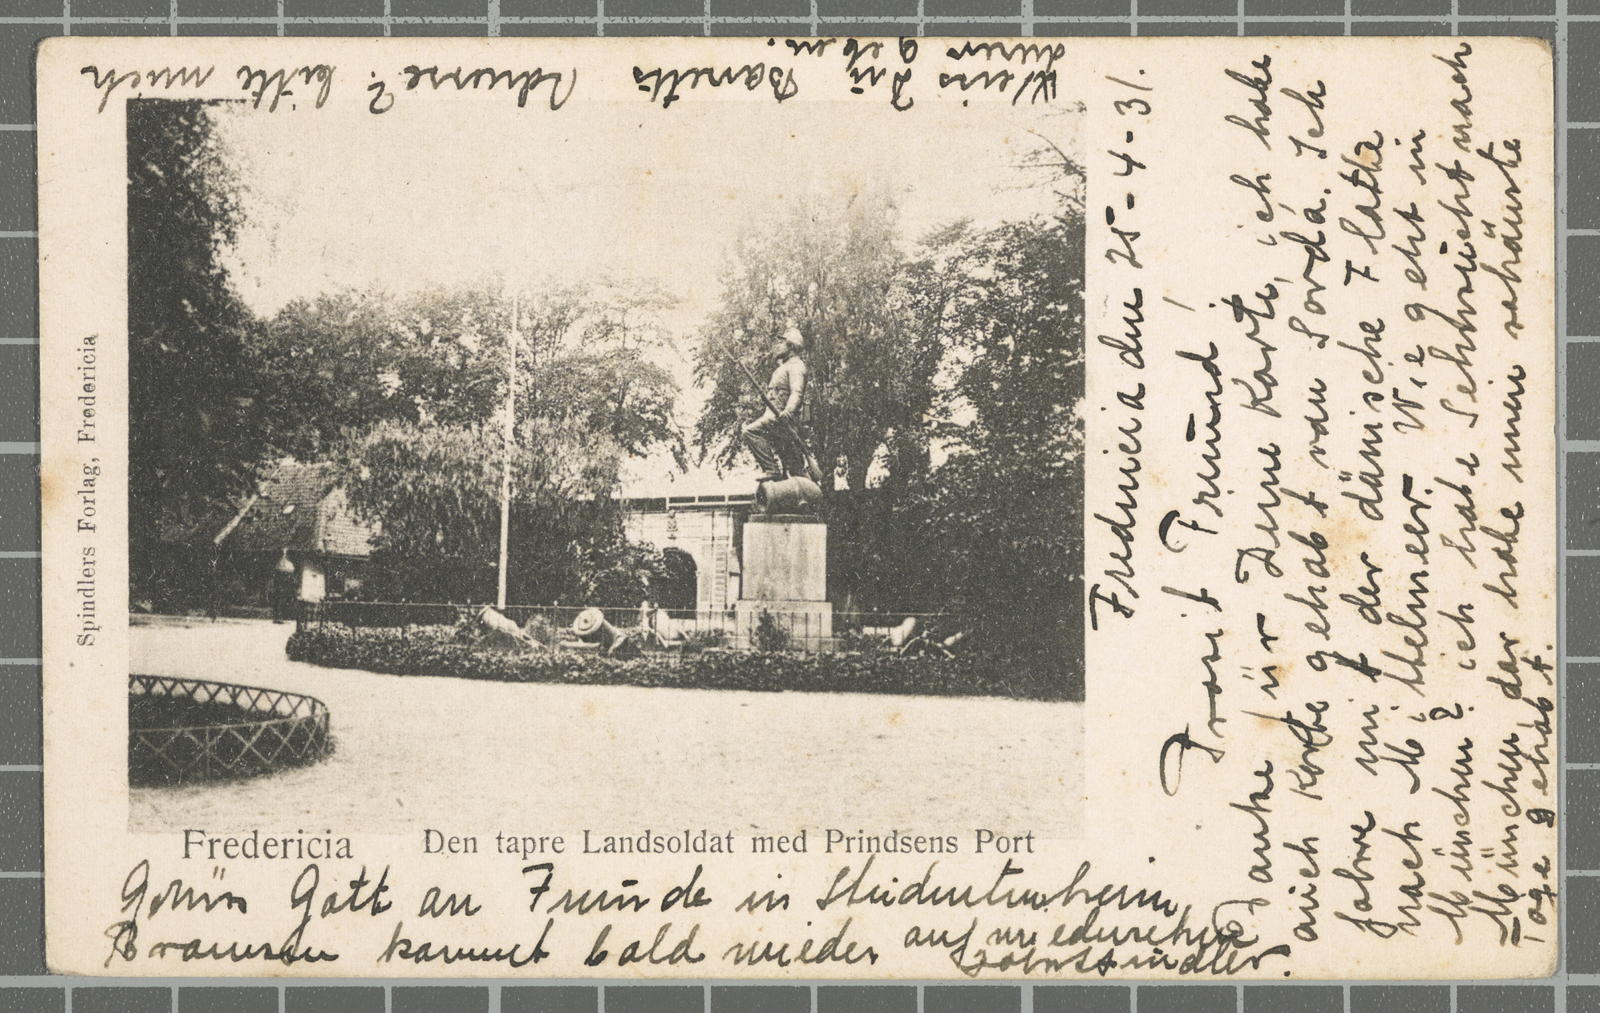 Fredericia den 25-4-31.
Prosit Freund!
Danke für Deine Karte, ich habe
auch Karte gehabt von Sorda. Ich
fahre mit der dänische Flotte
nach Mittelmeer. Wie geht in
München? ich habe Sehnsucht nach
München dar habe meine schönste
Tage gehabt.
Grüss Gott an Freunde in Studentenheim
kommt bald wieder auf wiedersehen
Weis Du Adresse? bitte mich
geben.
Spindlers Forlag, Fredericia
Fredericia Den tapre Landsoldat med Prindsens Port